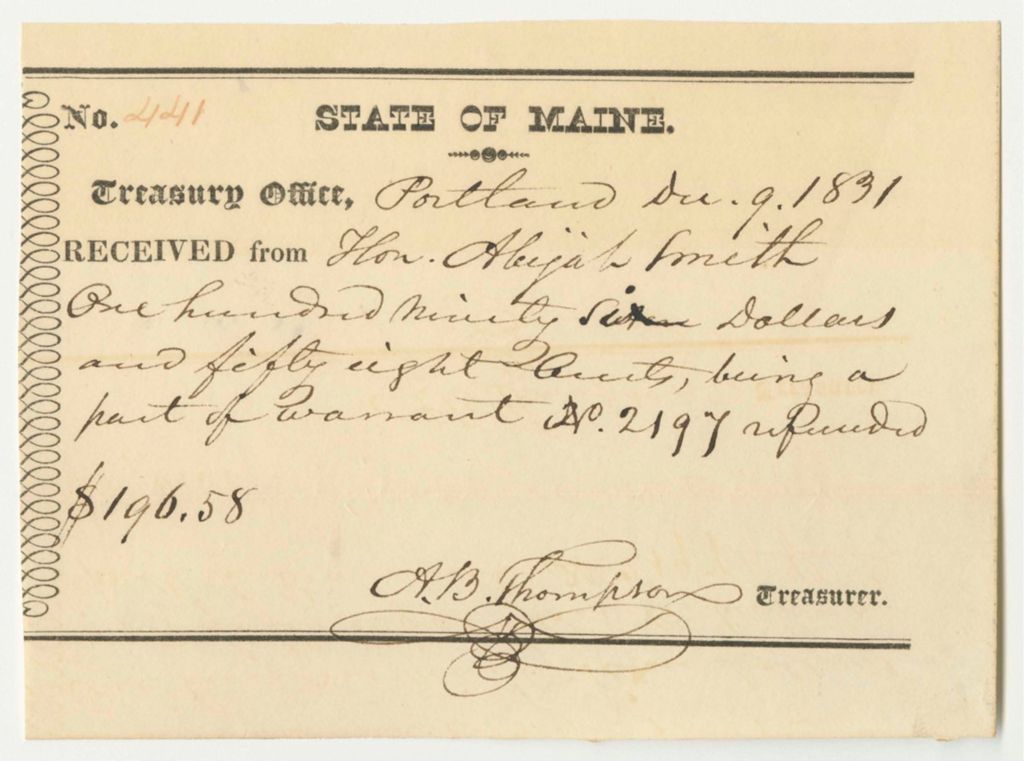 No. 441 STATE OF MAINE.
Treasury Office, Portland Dec. 9. 1831
RECEIVED from Hon. Abijah Smith
One hundred Ninety Six Dollars
and fifty eight Cents, being a
part of warrant No. 2197 refunded
$196.58
A.B. Thompson Treasurer.